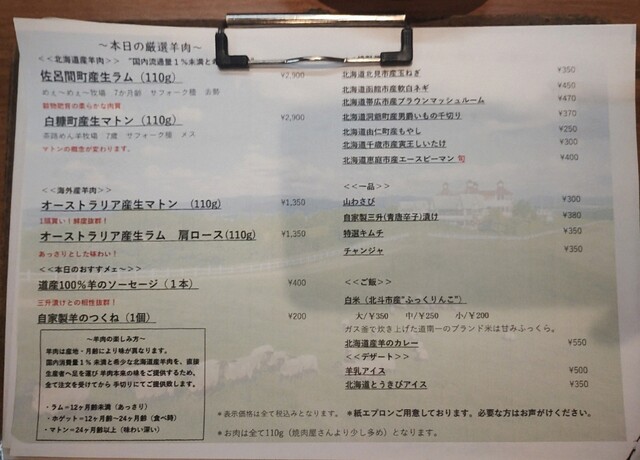 ～本日の厳選羊肉～
＜＜北海道産羊肉＞＞ "国内流通量１％未満と
佐呂間町産生ラム（110g） ¥2,900
めぇ～めぇ～牧場 7か月齢 サフォーク種 去勢
穀物肥育の柔らかな肉質
白糠町産生マトン（110g） ¥2,900
茶路めん羊牧場 7歳 サフォーク種 メス
マトンの概念が変わります。
＜＜海外産羊肉＞＞
オーストラリア産生マトン （110g) ¥1,350
鮮度抜群！
オーストラリア産生ラム 肩ロース(110g) ¥1,350
あっさりとした味わい！
＜＜本日のおすすメェ～＞＞
道産100％羊のソーセージ（１本） ¥400
三升漬けとの相性抜群！
自家製羊のつくね（1個） ¥200
～羊肉の楽しみ方～
羊肉は産地・月齢により味が異なります。
国内流通量１％未満と希少な北海道産羊肉を、直接
生産者へ足を運び 羊肉本来の味をご提供するため、
全て注文を受けてから 手切りにてご提供致します。
・ラム＝12ヶ月齢未満（あっさり）
・ホゲット＝12ヶ月～24ヶ月齢（食べ時）
・マトン＝24ヶ月齢以上（味わい深い）
北海道北見市産玉ねぎ ¥350
北海道函館市産軟白ネギ ¥450
北海道帯広市産ブラウンマッシュルーム ¥470
北海道洞爺町産男爵いもの千切り ¥370
北海道由仁町産もやし ¥250
北海道千歳市産寅王しいたけ ¥300
北海道恵庭市産エースピーマン 旬 ¥400
＜＜一品＞＞
山わさび ¥300
自家製三升(青唐辛子)漬け ¥380
特選キムチ ¥350
チャンジャ ¥350
＜＜ご飯＞＞
白米（北斗市産"ふっくりんこ"）
大/￥350 中/￥250 小/￥200
ガス釜で炊き上げた道南一のブランド米は甘みふっくら。
北海道産羊のカレー ¥550
＜＜デザート＞＞
羊乳アイス ¥500
北海道とうきびアイス ¥350
＊表示価格は全て税込みとなります。 ＊紙エプロンご用意しております。必要な方はお声がけください。
＊お肉は全て110g（焼肉屋さんより少し多め）となります。